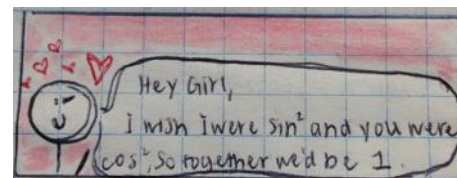 Hey Girl,
i wish i were sin² and you were
cos², so together we'd be 1.